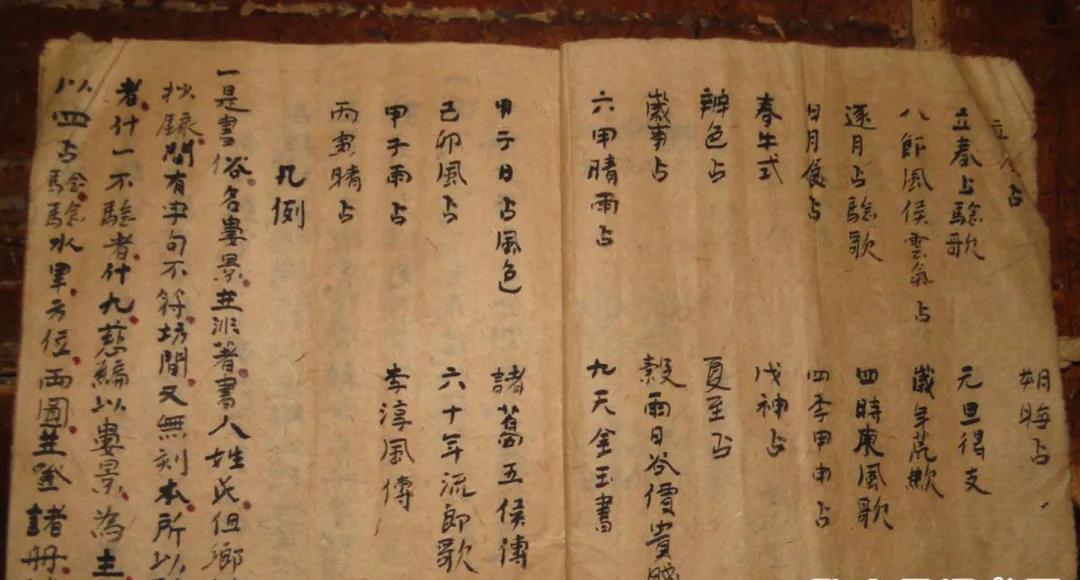 占
朔晦占
立春占驗歌
元旦得支
八節風侯雲氣占
歲年荒歉
逐月占驗歌
四時東風歌
日月食占
四季甲申占
春牛式
戊神占
辨色占
夏至占
歲事占
穀雨日谷價貴賤
六甲晴雨占
九天金玉書
甲子日占風色
諸葛五侯傳
己卯風占
六十年流郎歌
甲子雨占
李淳風傳
丙寅晴占
凡例
一是書俗名婁景並非著書人姓氏但鄉
抄錄間有字句不符坊間又無刻本所以
者什一不驗者什九慈編以婁景為主
以四占驗驗水旱方位兩圖並登諸册